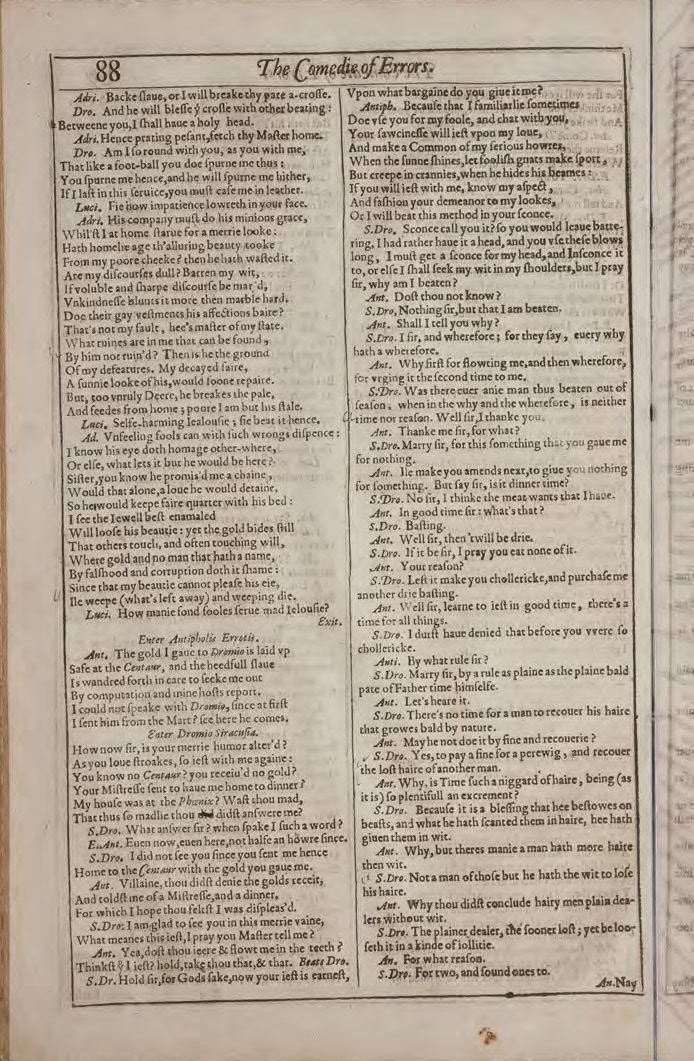 88
The Comedie of Errors.
Adri. Backe ſlaue, or I will breake thy pate a-croſſe.
Dro. And he will bleſſe ẏ croſſe with other beating:
Betweene you, I ſhall haue a holy head.
Adri. Hence prating peſant, fetch thy Maſter home.
Dro. Am I ſo round with you, as you with me,
That like a foot-ball you doe ſpurne me thus:
You ſpurne me hence, and he will ſpurne me hither,
If I laſt in this ſeruice, you muſt caſe me in leather.
Luci. Fie how impatience lowreth in your face.
Adri. His company muſt do his minions grace,
Whil'ſt I at home ſtarue for a merrie looke:
Hath homelie age th'alluring beauty tooke
From my poore cheeke? then he hath waſted it.
Are my diſcourſes dull? Barren my wit,
If voluble and ſharpe diſcourſe be mar'd,
Vnkindneſſe blunts it more then marble hard.
Doe their gay veſtments his affections baite?
That's not my fault, hee's maſter of my ſtate.
What ruines are in me that can be found,
By him not ruin'd? Then is he the ground
Of my defeatures. My decayed faire,
A ſunnie looke of his, would ſoone repaire.
But, too vnruly Deere, he breakes the pale,
And feedes from home; poore I am but his ſtale.
Luci. Selfe-harming Iealouſie; fie beat it hence.
Ad. Vnfeeling fools can with ſuch wrongs diſpence:
I know his eye doth homage other-where,
Or elſe, what lets it but he would be here?
Siſter, you know he promis'd me a chaine,
Would that alone, a loue he would detaine,
So he would keepe faire quarter with his bed:
I ſee the Iewell beſt enamaled
Will looſe his beautie: yet the gold bides ſtill
That others touch, and often touching will,
Where gold and no man that hath a name,
By falſhood and corruption doth it ſhame:
Since that my beautie cannot pleaſe his eie,
Ile weepe (what's left away) and weeping die.
Luci. How manie fond fooles ſerue mad Ielouſie?
Exit.
Enter Antipholis Errotis.
Ant. The gold I gaue to Dromio is laid vp
Safe at the Centaur, and the heedfull ſlaue
Is wandred forth in care to ſeeke me out
By computation and mine hoſts report.
I could not ſpeake with Dromio, ſince at firſt
I ſent him from the Mart? ſee here he comes.
Enter Dromio Siracuſia.
How now ſir, is your merrie humor alter'd?
As you loue ſtroakes, ſo ieſt with me againe:
You know no Centaur? you receiu'd no gold?
Your Miſtreſſe ſent to haue me home to dinner?
My houſe was at the Phœnix? Waſt thou mad,
That thus ſo madlie thou didſt anſwere me?
S.Dro. What anſwer ſir? when ſpake I ſuch a word?
E.Ant. Euen now, euen here, not halfe an howre ſince.
S.Dro. I did not ſee you ſince you ſent me hence
Home to the Centaur with the gold you gaue me.
Ant. Villaine, thou didſt denie the golds receit,
And toldſt me of a Miſtreſſe, and a dinner,
For which I hope thou feltſt I was diſpleas'd.
S.Dro. I am glad to ſee you in this merrie vaine,
What meanes this ieſt, I pray you Maſter tell me?
Ant. Yea, doſt thou ieere & flowt me in the teeth?
Thinkſt ẏ I ieſt? hold, take thou that, & that. Beats Dro.
S.Dr. Hold ſir, for Gods ſake, now your ieſt is earneſt,
Vpon what bargaine do you giue it me?
Antiph. Becauſe that I familiarlie ſometimes
Doe vſe you for my foole, and chat with you,
Your ſawcineſſe will ieſt vpon my loue,
And make a Common of my ſerious howres,
When the ſunne ſhines, let fooliſh gnats make ſport,
But creepe in crannies, when he hides his beames:
If you will ieſt with me, know my aſpect,
And faſhion your demeanor to my lookes,
Or I will beat this method in your ſconce.
S.Dro. Sconce call you it? ſo you would leaue batte-
ring, I had rather haue it a head, and you vſe theſe blows
long, I muſt get a ſconce for my head, and Inſconce it
to, or elſe I ſhall ſeek my wit in my ſhoulders, but I pray
ſir, why am I beaten?
Ant. Doſt thou not know?
S.Dro. Nothing ſir, but that I am beaten.
Ant. Shall I tell you why?
S.Dro. I ſir, and wherefore; for they ſay, euery why
hath a wherefore.
Ant. Why firſt for flowting me, and then wherefore,
for vrging it the ſecond time to me.
S.Dro. Was there euer anie man thus beaten out of
ſeaſon, when in the why and the wherefore, is neither
time nor reaſon. Well ſir, I thanke you.
Ant. Thanke me ſir, for what?
S.Dro. Marry ſir, for this ſomething that you gaue me
for nothing.
Ant. Ile make you amends next, to giue you nothing
for ſomething. But ſay ſir, is it dinner time?
S.Dro. No ſir, I thinke the meat wants that I haue.
Ant. In good time ſir: what's that?
S.Dro. Baſting.
Ant. Well ſir, then 'twill be drie.
S.Dro. If it be ſir, I pray you eat none of it.
Ant. Your reaſon?
S.Dro. Leſt it make you chollericke, and purchaſe me
another drie baſting.
Ant. Well ſir, learne to ieſt in good time, there's a
time for all things.
S.Dro. I durſt haue denied that before you vvere ſo
chollericke.
Anti. By what rule ſir?
S.Dro. Marry ſir, by a rule as plaine as the plaine bald
pate of Father time himſelfe.
Ant. Let's heare it.
S.Dro. There's no time for a man to recouer his haire
that growes bald by nature.
Ant. May he not doe it by fine and recouerie?
S.Dro. Yes, to pay a fine for a perewig, and recouer
the loſt haire of another man.
Ant. Why, is Time ſuch a niggard of haire, being (as
it is) ſo plentifull an excrement?
S.Dro. Becauſe it is a bleſſing that hee beſtowes on
beaſts, and what he hath ſcanted them in haire, hee hath
giuen them in wit.
Ant. Why, but theres manie a man hath more haire
then wit.
S.Dro. Not a man of thoſe but he hath the wit to loſe
his haire.
Ant. Why thou didſt conclude hairy men plain dea-
lers without wit.
S.Dro. The plainer dealer, the ſooner loſt; yet he loo-
ſeth it in a kinde of iollitie.
An. For what reaſon.
S.Dro. For two, and ſound ones to.
An. Nay